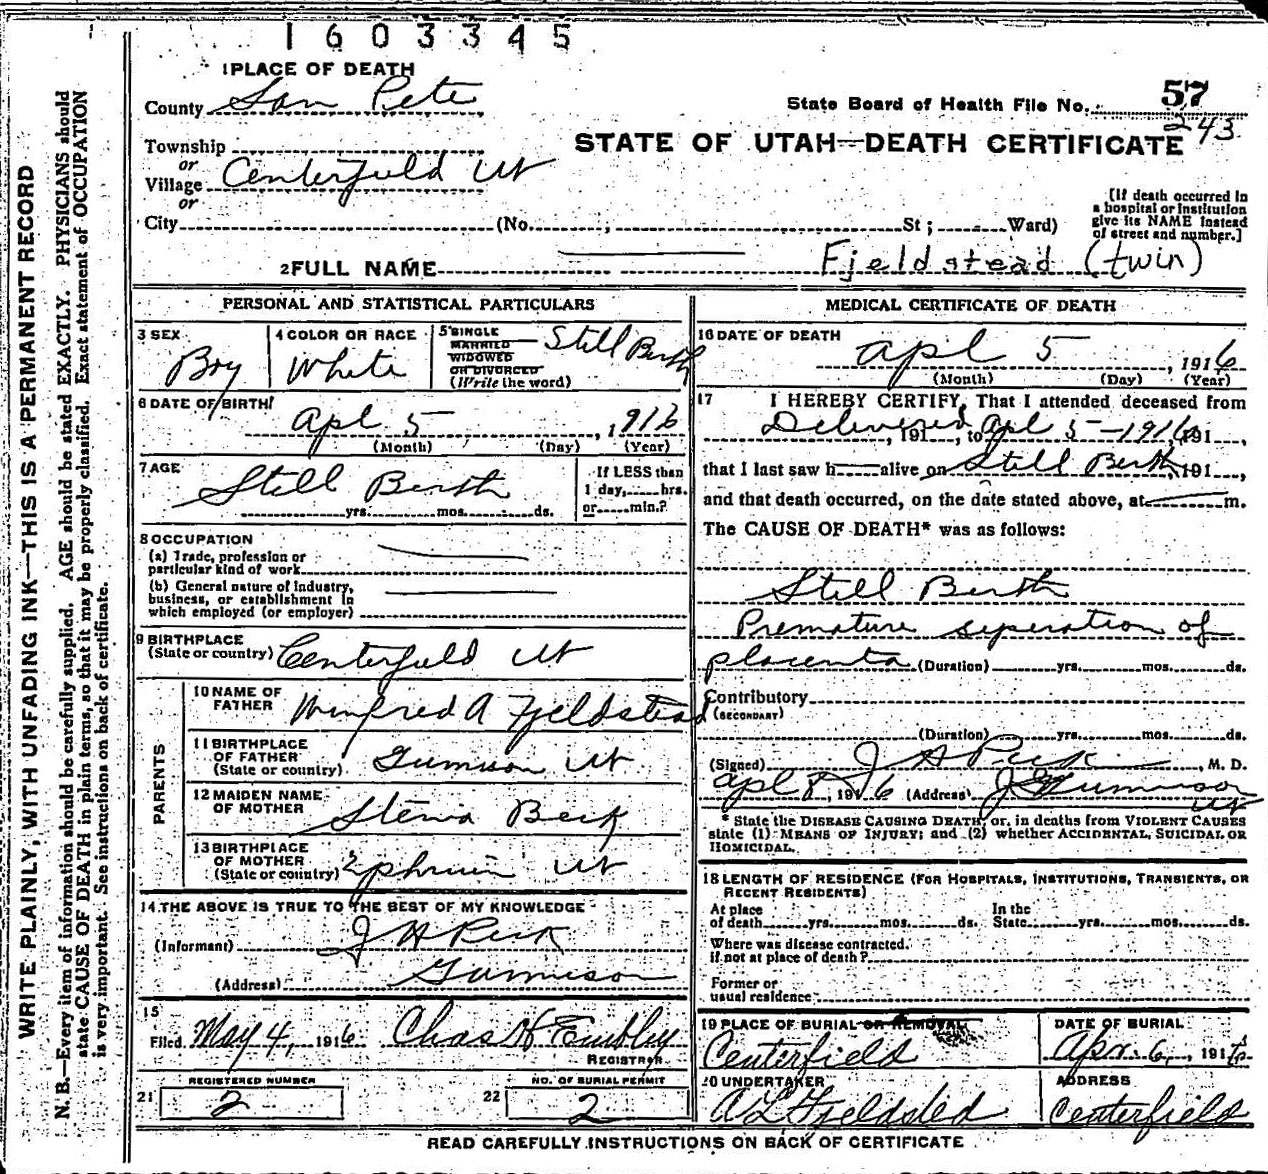 1603345
1 PLACE OF DEATH
County San Pete
State Board of Health File No. 57
243
STATE OF UTAH—DEATH CERTIFICATE
Township
or
Village Centerfield Ut
or
City (No. ; St; Ward)
[If death occurred in
a hospital or institution
give its NAME instead
of street and number.]
2 FULL NAME Fjeldstead (twin)
PERSONAL AND STATISTICAL PARTICULARS
3 SEX
Boy
4 COLOR OR RACE
White
5 SINGLE
MARRIED
WIDOWED
OR DIVORCED
(Write the word)
Still Birth
6 DATE OF BIRTH
Apl 5, 1916
(Month) (Day) (Year)
7 AGE
Still Berth
yrs. mos. ds.
If LESS than
1 day, hrs.
or min.?
8 OCCUPATION
(a) Trade, profession or
particular kind of work
(b) General nature of industry,
business, or establishment in
which employed (or employer)
9 BIRTHPLACE
(State or country) Centerfield Ut
PARENTS
10 NAME OF
FATHER Winfred A Fjeldstead
11 BIRTHPLACE
OF FATHER
(State or country) Gunnison Ut
12 MAIDEN NAME
OF MOTHER Stena Beck
13 BIRTHPLACE
OF MOTHER
(State or country) Ephraim Ut
14 THE ABOVE IS TRUE TO THE BEST OF MY KNOWLEDGE
(Informant) J H Peck
(Address) Gunnison
15
Filed May 4, 1916 Chas H Embley
REGISTRAR
REGISTERED NUMBER
21 2
NO. OF BURIAL PERMIT
22 2
MEDICAL CERTIFICATE OF DEATH
16 DATE OF DEATH
Apl 5, 1916
(Month) (Day) (Year)
17 I HEREBY CERTIFY, That I attended deceased from
Delivered, 191, to Apl 5-1916 191,
that I last saw h alive on Still Berth, 191,
and that death occurred, on the date stated above, at m.
The CAUSE OF DEATH* was as follows:
Still Berth
Premature seperation of
placenta (Duration) yrs. mos. ds.
Contributory
(SECONDARY)
(Duration) yrs. mos. ds.
(Signed) J H Peck, M. D.
Apl 8, 1916 (Address) Gunnison
Ut
* State the DISEASE CAUSING DEATH, or, in deaths from VIOLENT CAUSES
state (1) MEANS OF INJURY; and (2) whether ACCIDENTAL, SUICIDAL OR
HOMICIDAL.
18 LENGTH OF RESIDENCE (FOR HOSPITALS, INSTITUTIONS, TRANSIENTS, OR
RECENT RESIDENTS)
At place
of death yrs. mos. ds.
In the
State yrs. mos. ds.
Where was disease contracted,
if not at place of death?
Former or
usual residence
19 PLACE OF BURIAL OR REMOVAL
Centerfield
DATE OF BURIAL
Apr. 6, 1916
20 UNDERTAKER
A L Fjeldsted
ADDRESS
Centerfield
READ CAREFULLY INSTRUCTIONS ON BACK OF CERTIFICATE
WRITE PLAINLY, WITH UNFADING INK—THIS IS A PERMANENT RECORD
N. B.—Every item of information should be carefully supplied. AGE should be stated EXACTLY. PHYSICIANS should
state CAUSE OF DEATH in plain terms, so that it may be properly classified. Exact statement of OCCUPATION
is very important. See instructions on back of certificate.